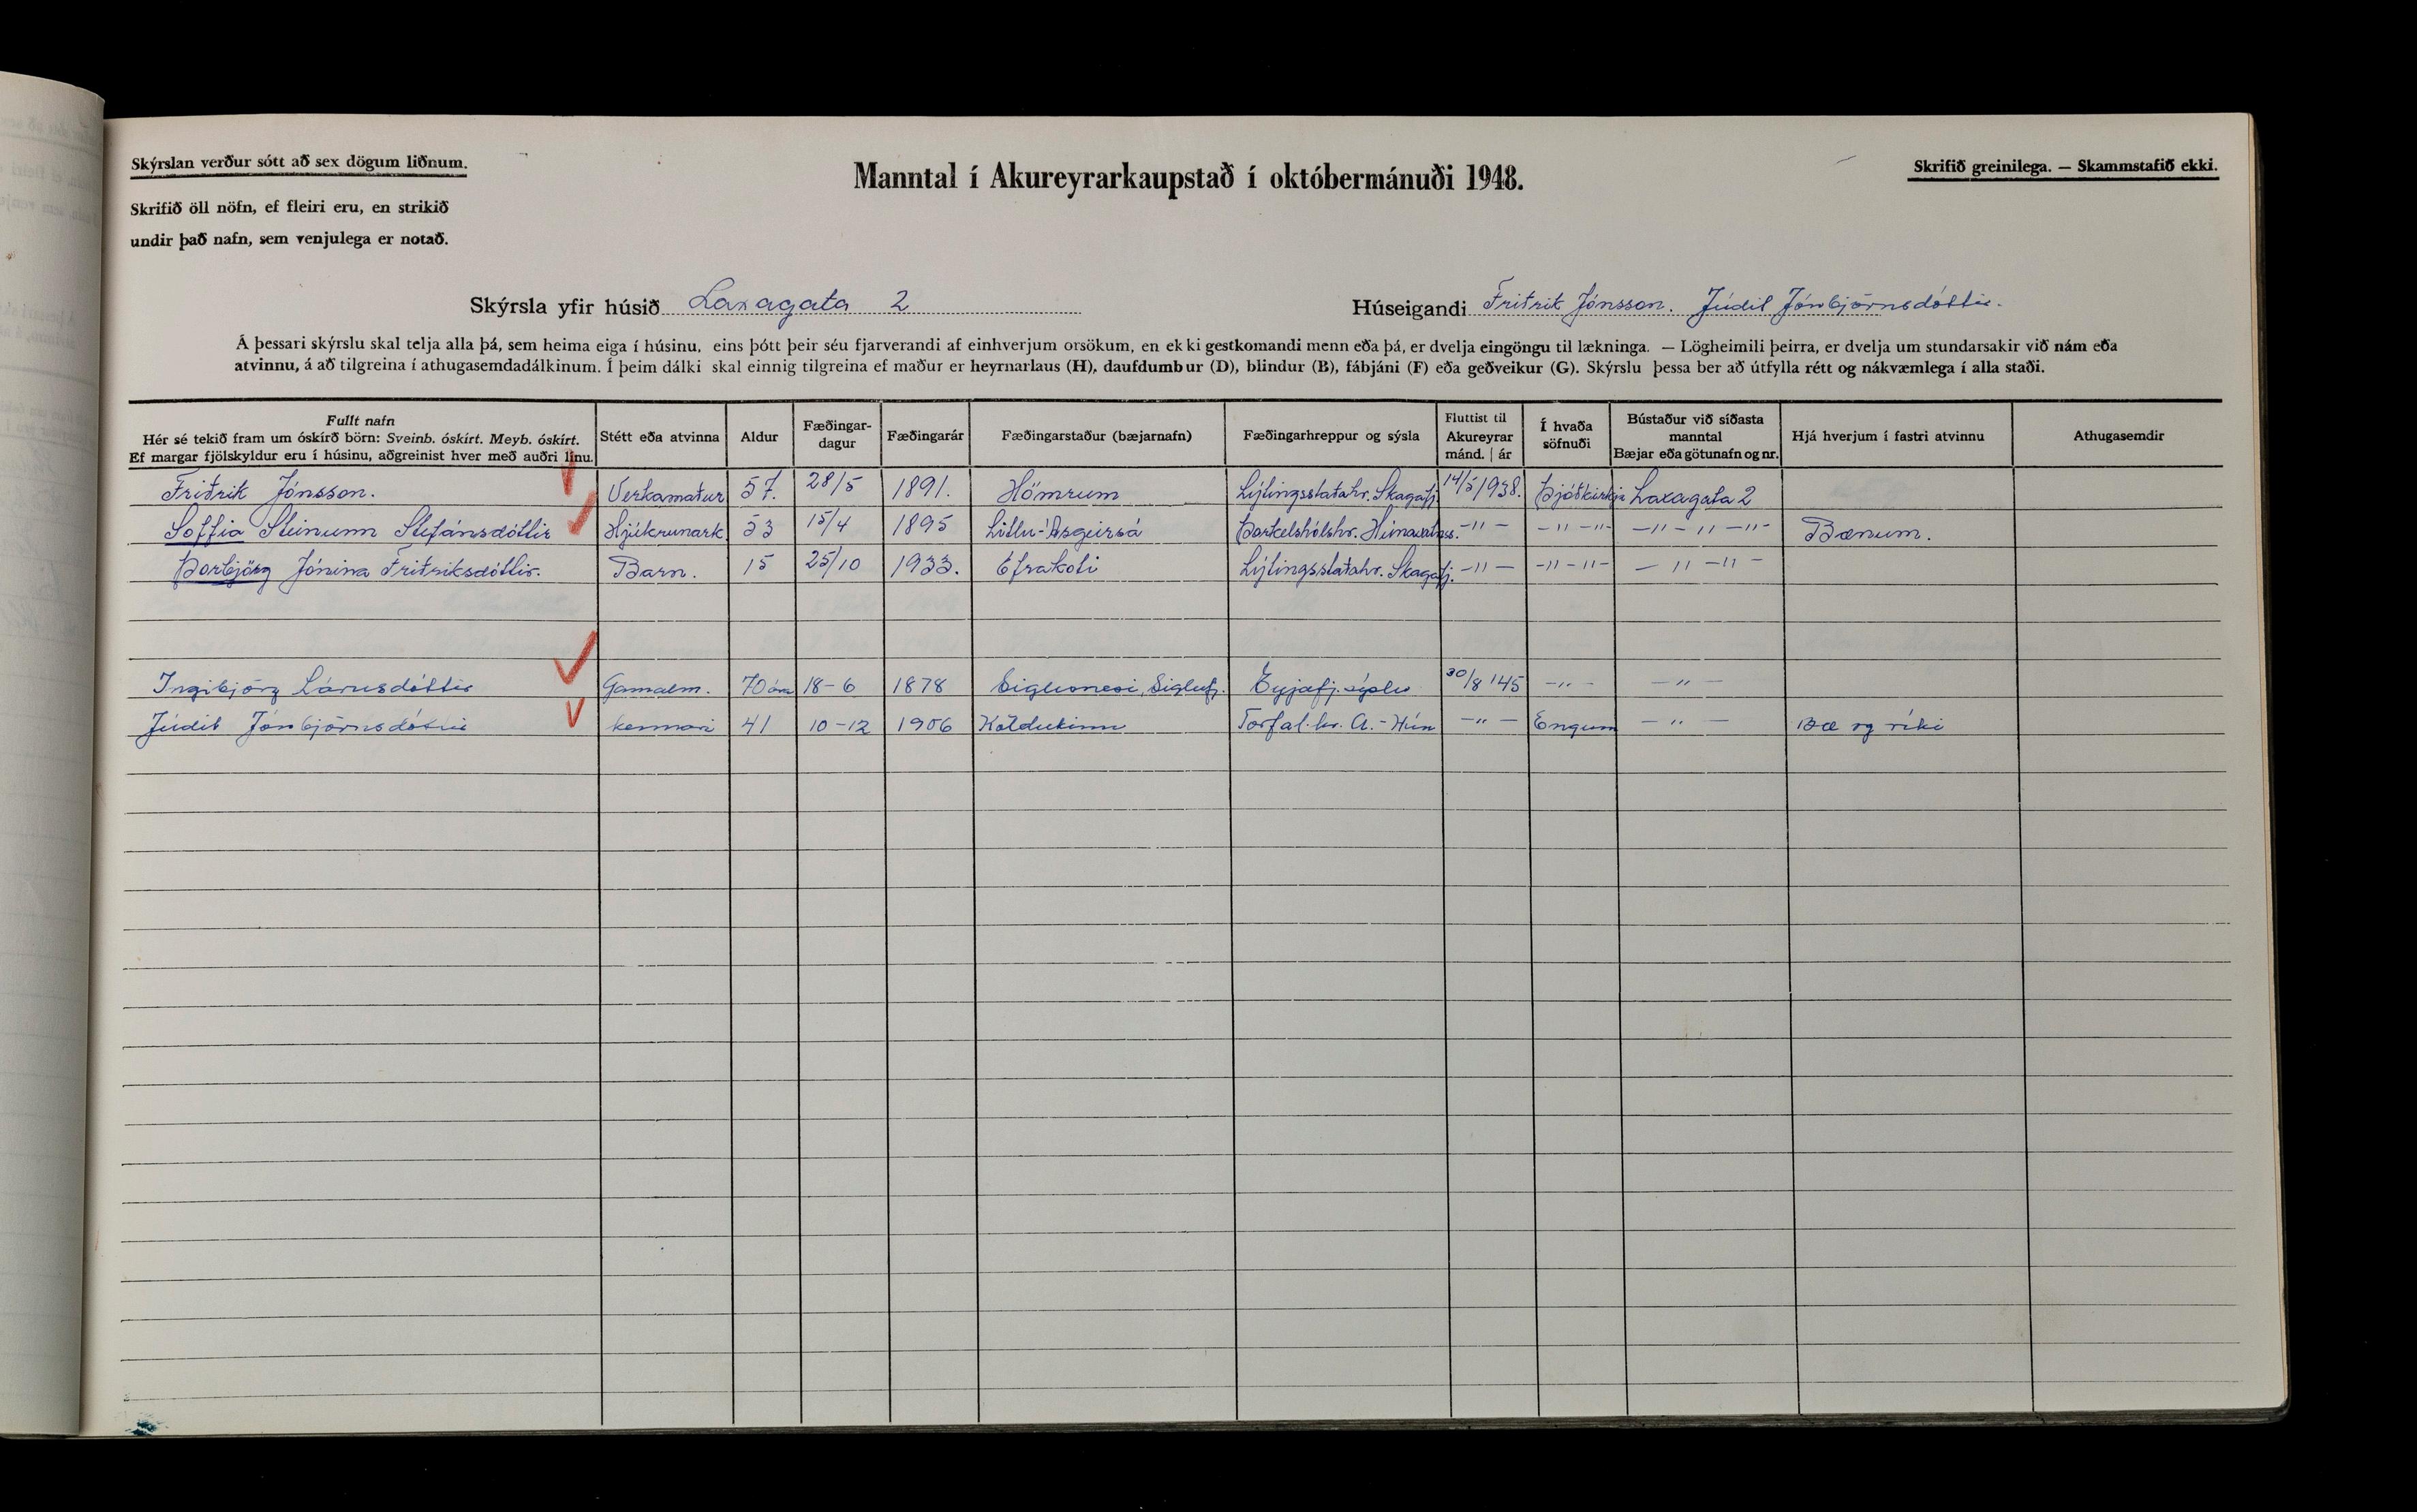 Skýrslan verður sótt að sex dögum liðnum.
Skrifið öll nöfn, ef fleiri eru, en strikið
undir það nafn, sem venjulega er notað.
Manntal í Akureyrarkaupstað í októbermánuði 1948.
Skrifið greinilega. — Skammstafið ekki.
Skýrsla yfir húsið Laxagata 2
Húseigandi Friðrik Jónsson. Júdit Jónbjörnsdóttir.
Á þessari skýrslu skal telja alla þá, sem heima eiga í húsinu, eins þótt þeir séu fjarverandi af einhverjum orsökum, en ekki gestkomandi menn eða þá, er dvelja eingöngu til lækninga. — Lögheimili þeirra, er dvelja um stundarsakir við nám eða
atvinnu, á að tilgreina í athugasemdadálkinum. Í þeim dálki skal einnig tilgreina ef maður er heyrnarlaus (H), daufdumbur (D), blindur (B), fábjáni (F) eða geðveikur (G). Skýrslu þessa ber að útfylla rétt og nákvæmlega í alla staði.
Fullt nafn
Hér sé tekið fram um óskírð börn: Sveinb. óskírt. Meyb. óskírt.
Ef margar fjölskyldur eru í húsinu, aðgreinist hver með auðri línu.
Stétt eða atvinna
Aldur
Fæðingar-
dagur
Fæðingarár
Fæðingarstaður (bæjarnafn)
Fæðingarhreppur og sýsla
Fluttist til
Akureyrar
mánd. | ár
Í hvaða
söfnuði
Bústaður við síðasta
manntal
Bæjar eða götunafn og nr.
Hjá hverjum í fastri atvinnu
Athugasemdir
Friðrik Jónsson. Verkamaður 57. 28/5 1891. Hömrum Lýtingsstaðahr. Skagafj. 14/5 1938. Þjóðkirkja Laxagata 2
Soffia Steinunn Stefánsdóttir Hjúkrunark. 53 15/4 1895 Litlu-Ásgeirsá Þorkelshólshr. Húnavatnss. -"- -"-"- -"-"-"- Bænum.
Þorbjörg Jónina Friðriksdóttir. Barn. 15 25/10 1933. Efrakoti Lýtingsstaðahr. Skagafj. -"- -"-"- -"-"-
Ingibjörg Lárusdóttir Gamalm. 70 ára 18-6 1878 Siglunesi, Siglufj. Eyjafj.sýslu 30/8 '45 -"- -"-
Júdit Jónbjörnsdóttir kennari 41 10-12 1906 Köldukinn Torfal.hr. A.-Hún -"- Engum -"- Bæ og ríki